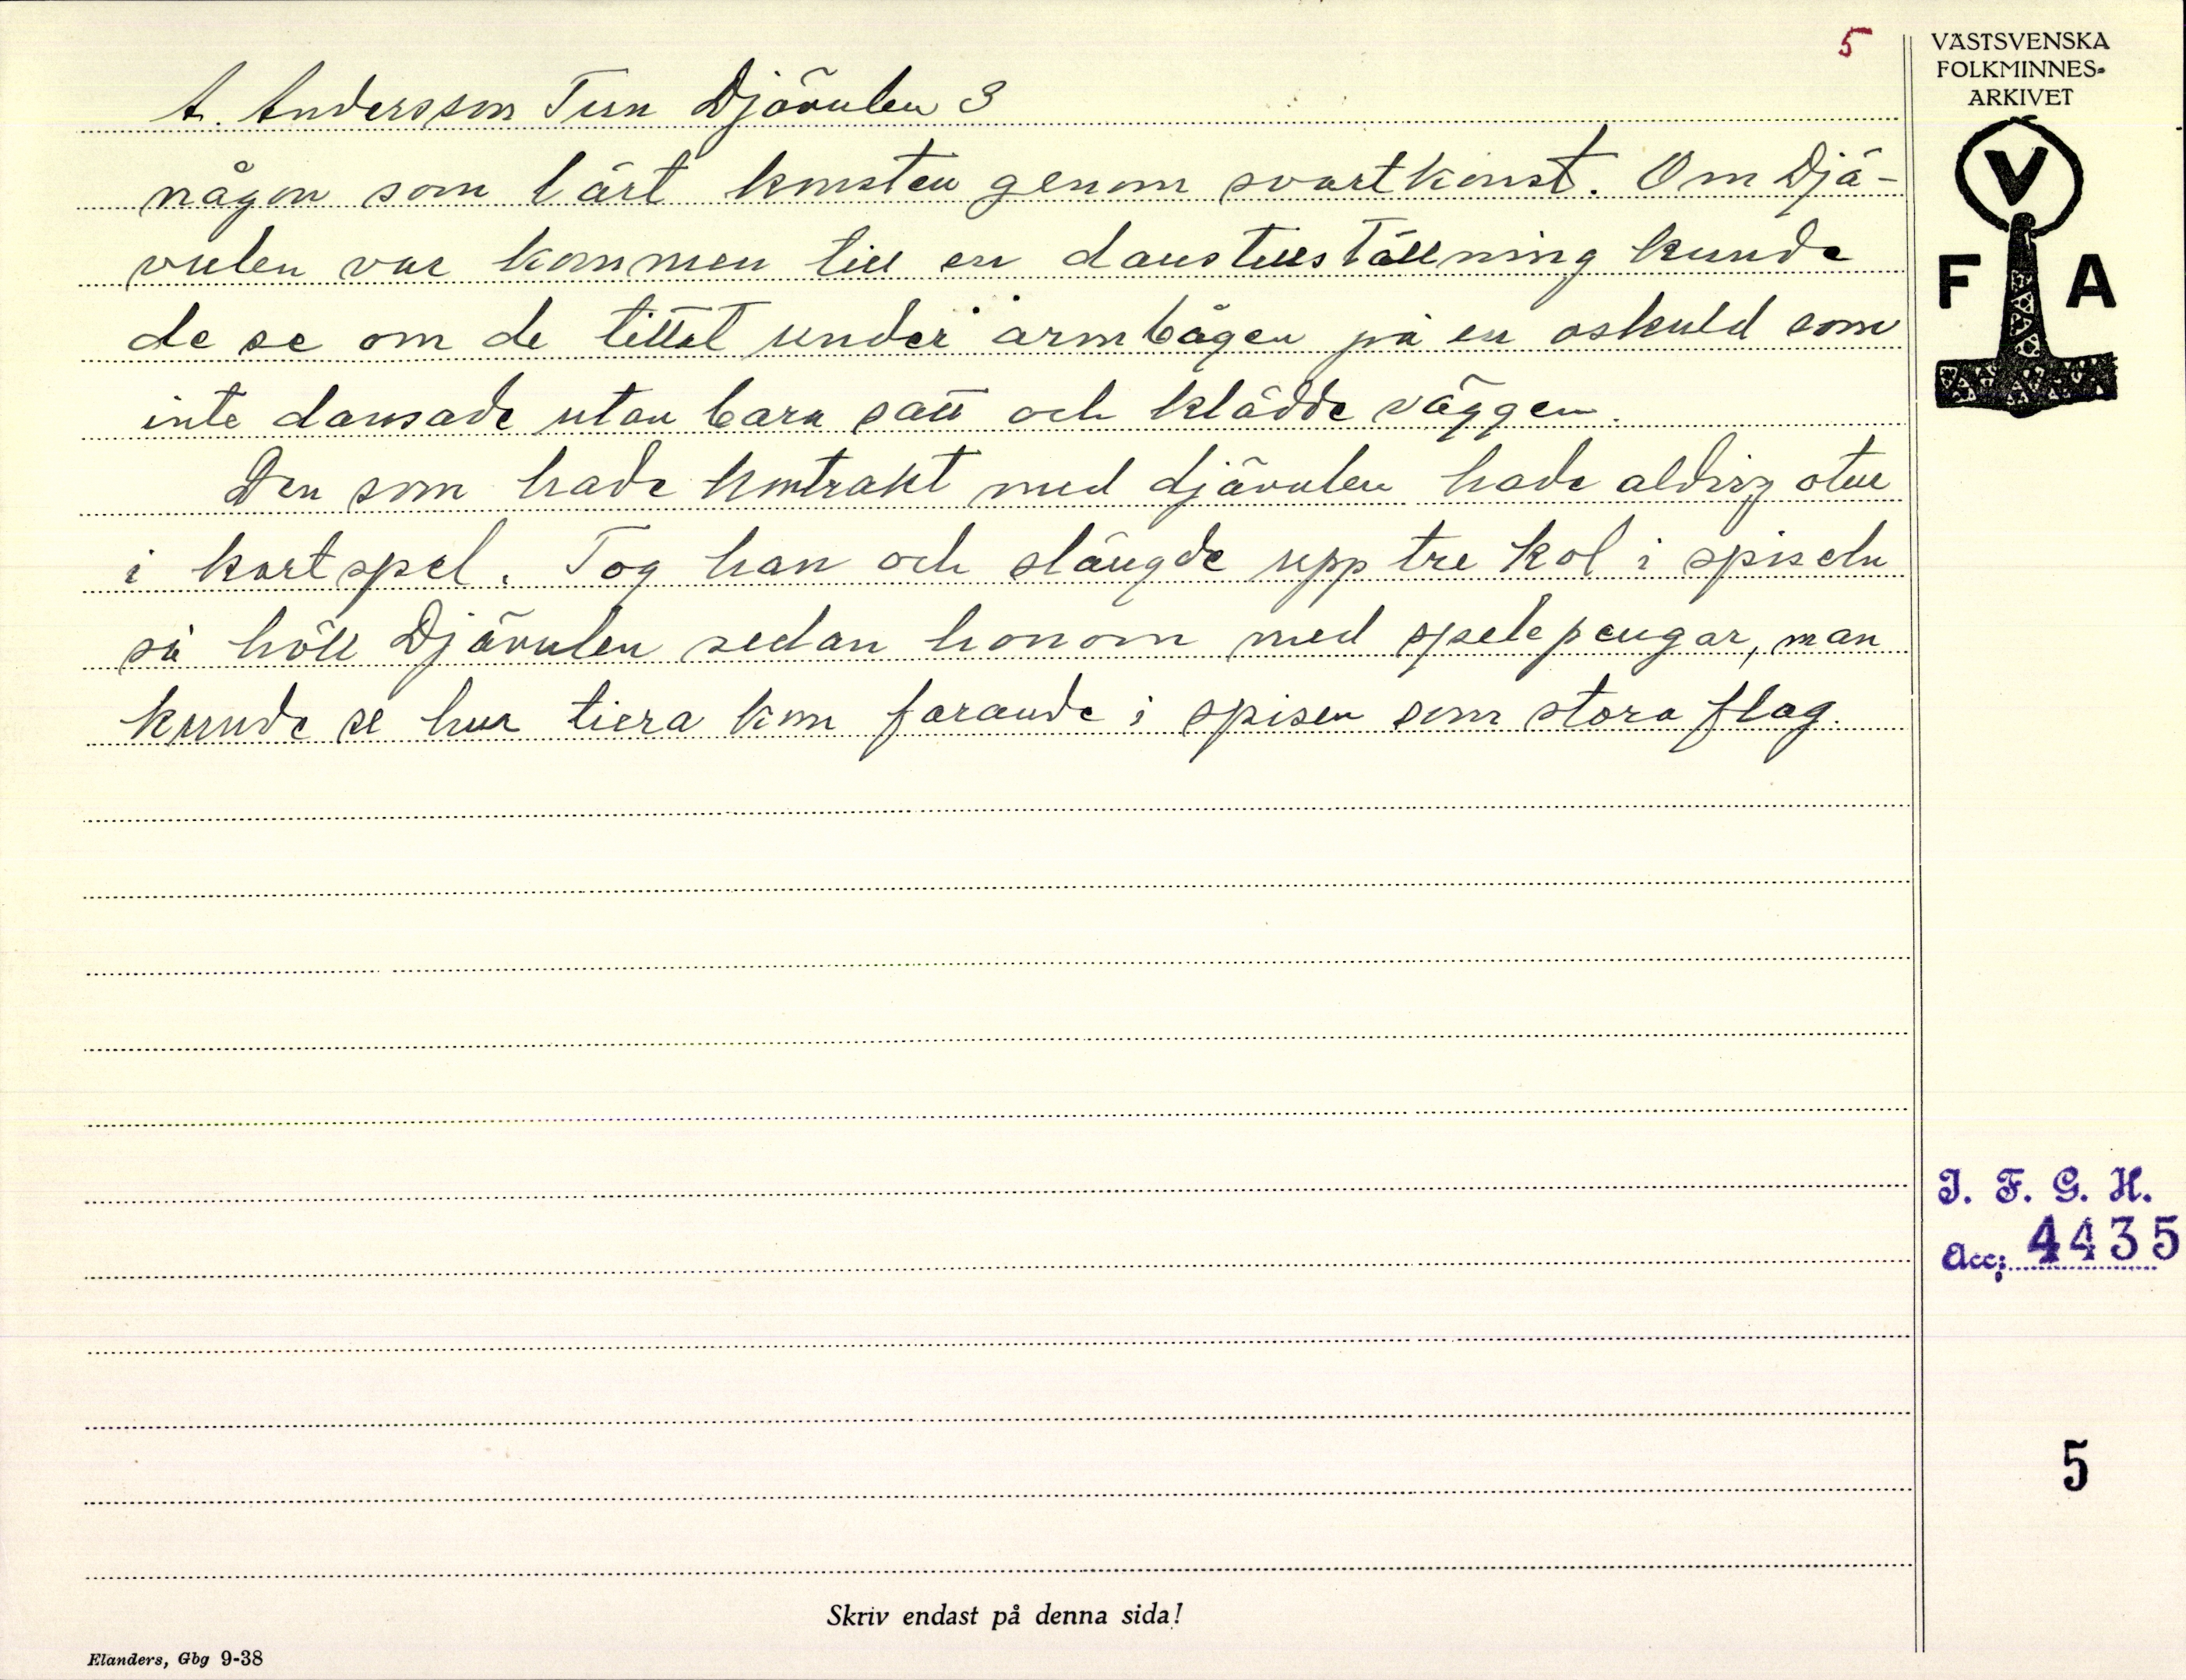 5
VÄSTSVENSKA
FOLKMINNES-
ARKIVET
V
F A
A. Andersson Tun Djävulen 3
någon som lärt konsten genom svartkonst. Om Djä-
vulen var kommen till en danstillställning kunde
de se om de tittat under armbågen på en oskuld som
inte dansade utan bara satt och klädde väggen.
Den som hade kontrakt med djävulen hade aldrig otur
i kortspel. Tog han och slängde upp tre kol i spiseln
så höll Djävulen sedan honom med spelepengar, man
kunde se hur tiera kom farande i spisen som stora flag.
I. F. G. H.
Acc; 4435
5
Skriv endast på denna sida!
Elanders, Gbg 9-38